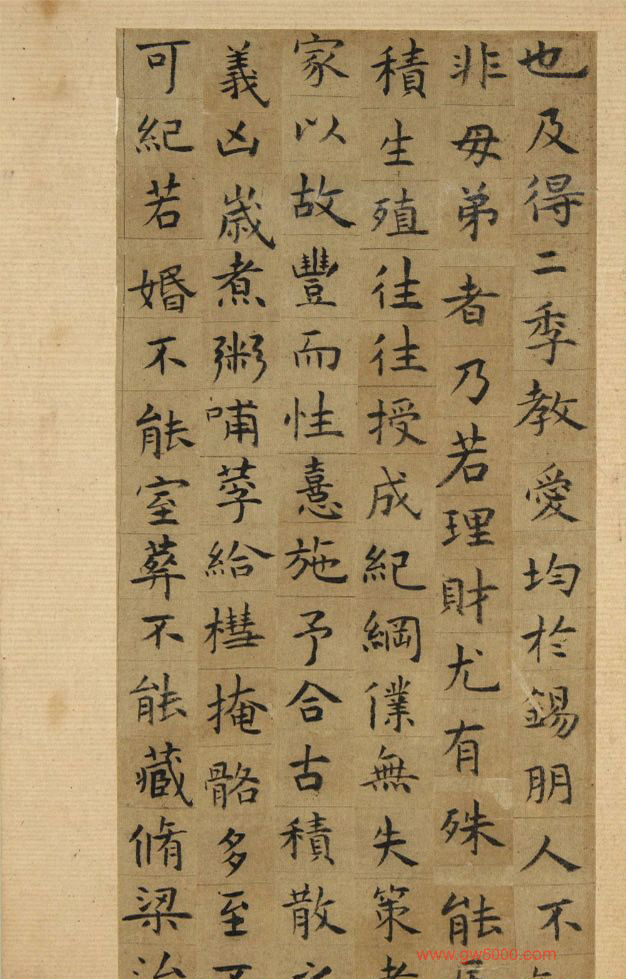 也及得二季教愛均於錫朋人不
非毋弟者乃若理財尤有殊能
積生殖往往授成紀綱僕無失策
家以故豐而性憙施予合古積散
義凶嵗煮粥哺莩給槥掩骼多至不
可紀若婚不能室葬不能藏脩梁治
www.gw5000.com